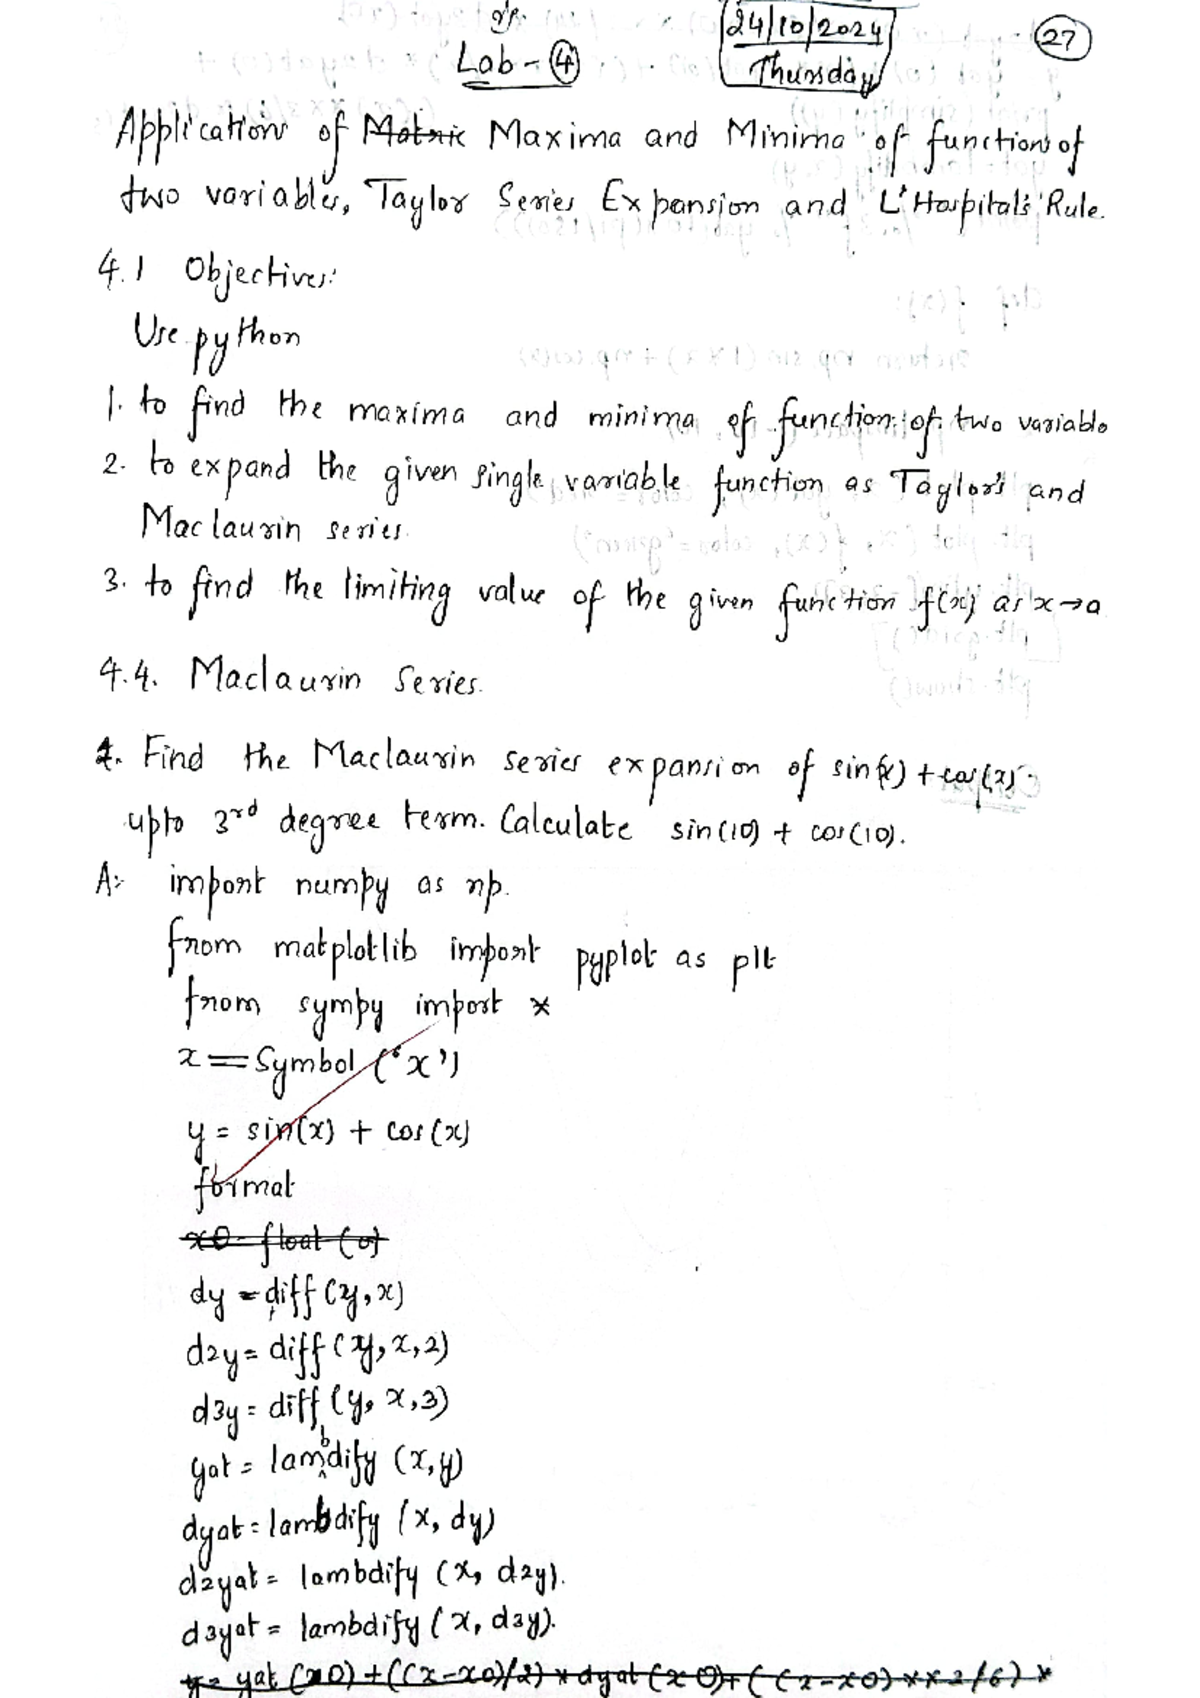 Lab - 4
24/10/2024
Thursday
27
Application of Matric Maxima and Minima of function of
two variables, Taylor Series Expansion and L'Hospital's Rule.
4.1 Objectives:
Use python
1. to find the maxima and minima of function of two variable
2. to expand the given single variable function as Taylor's and
Maclaurin series.
3. to find the limiting value of the given function f(x) as x→a
4.4. Maclaurin Series.
1. Find the Maclaurin series expansion of sin(x) + cos(x)
upto 3rd degree term. Calculate sin(10) + cos(10).
A:- import numpy as np.
from matplotlib import pyplot as plt
from sympy import *
x = Symbol ('x')
y = sin(x) + cos(x)
format
x0 = float (0)
dy = diff (y, x)
d2y = diff (y, x, 2)
d3y = diff (y, x, 3)
yat = lambdify (x, y)
dyat = lambdify (x, dy)
d2yat = lambdify (x, d2y).
d3yat = lambdify (x, d3y).
y = yat (x0) + ((x-x0)/2) * dyat (x0) + ((x-x0)**2/6) *